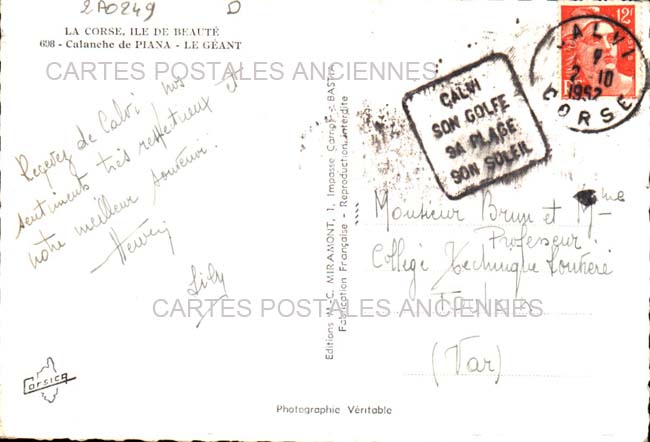 2A0249 D
LA CORSE, ILE DE BEAUTÉ
698 - Calanche de PIANA - LE GÉANT
CARTES POSTALES ANCIENNES
Recevez de Calvi nos
sentiments très respectueux et
notre meilleur souvenir.
Lily
Corsica
Editions M.-C. MIRAMONT, 1, Impasse Carnot - BASTIA
Fabrication Française - Reproduction Interdite
12F
CALVI
2-10
1952
CORSE
CALVI
SON GOLFE
SA PLAGE
SON SOLEIL
Monsieur Brun et Mme
Professeur
Collège Technique
(Var)
CARTES POSTALES ANCIENNES
Photographie Véritable